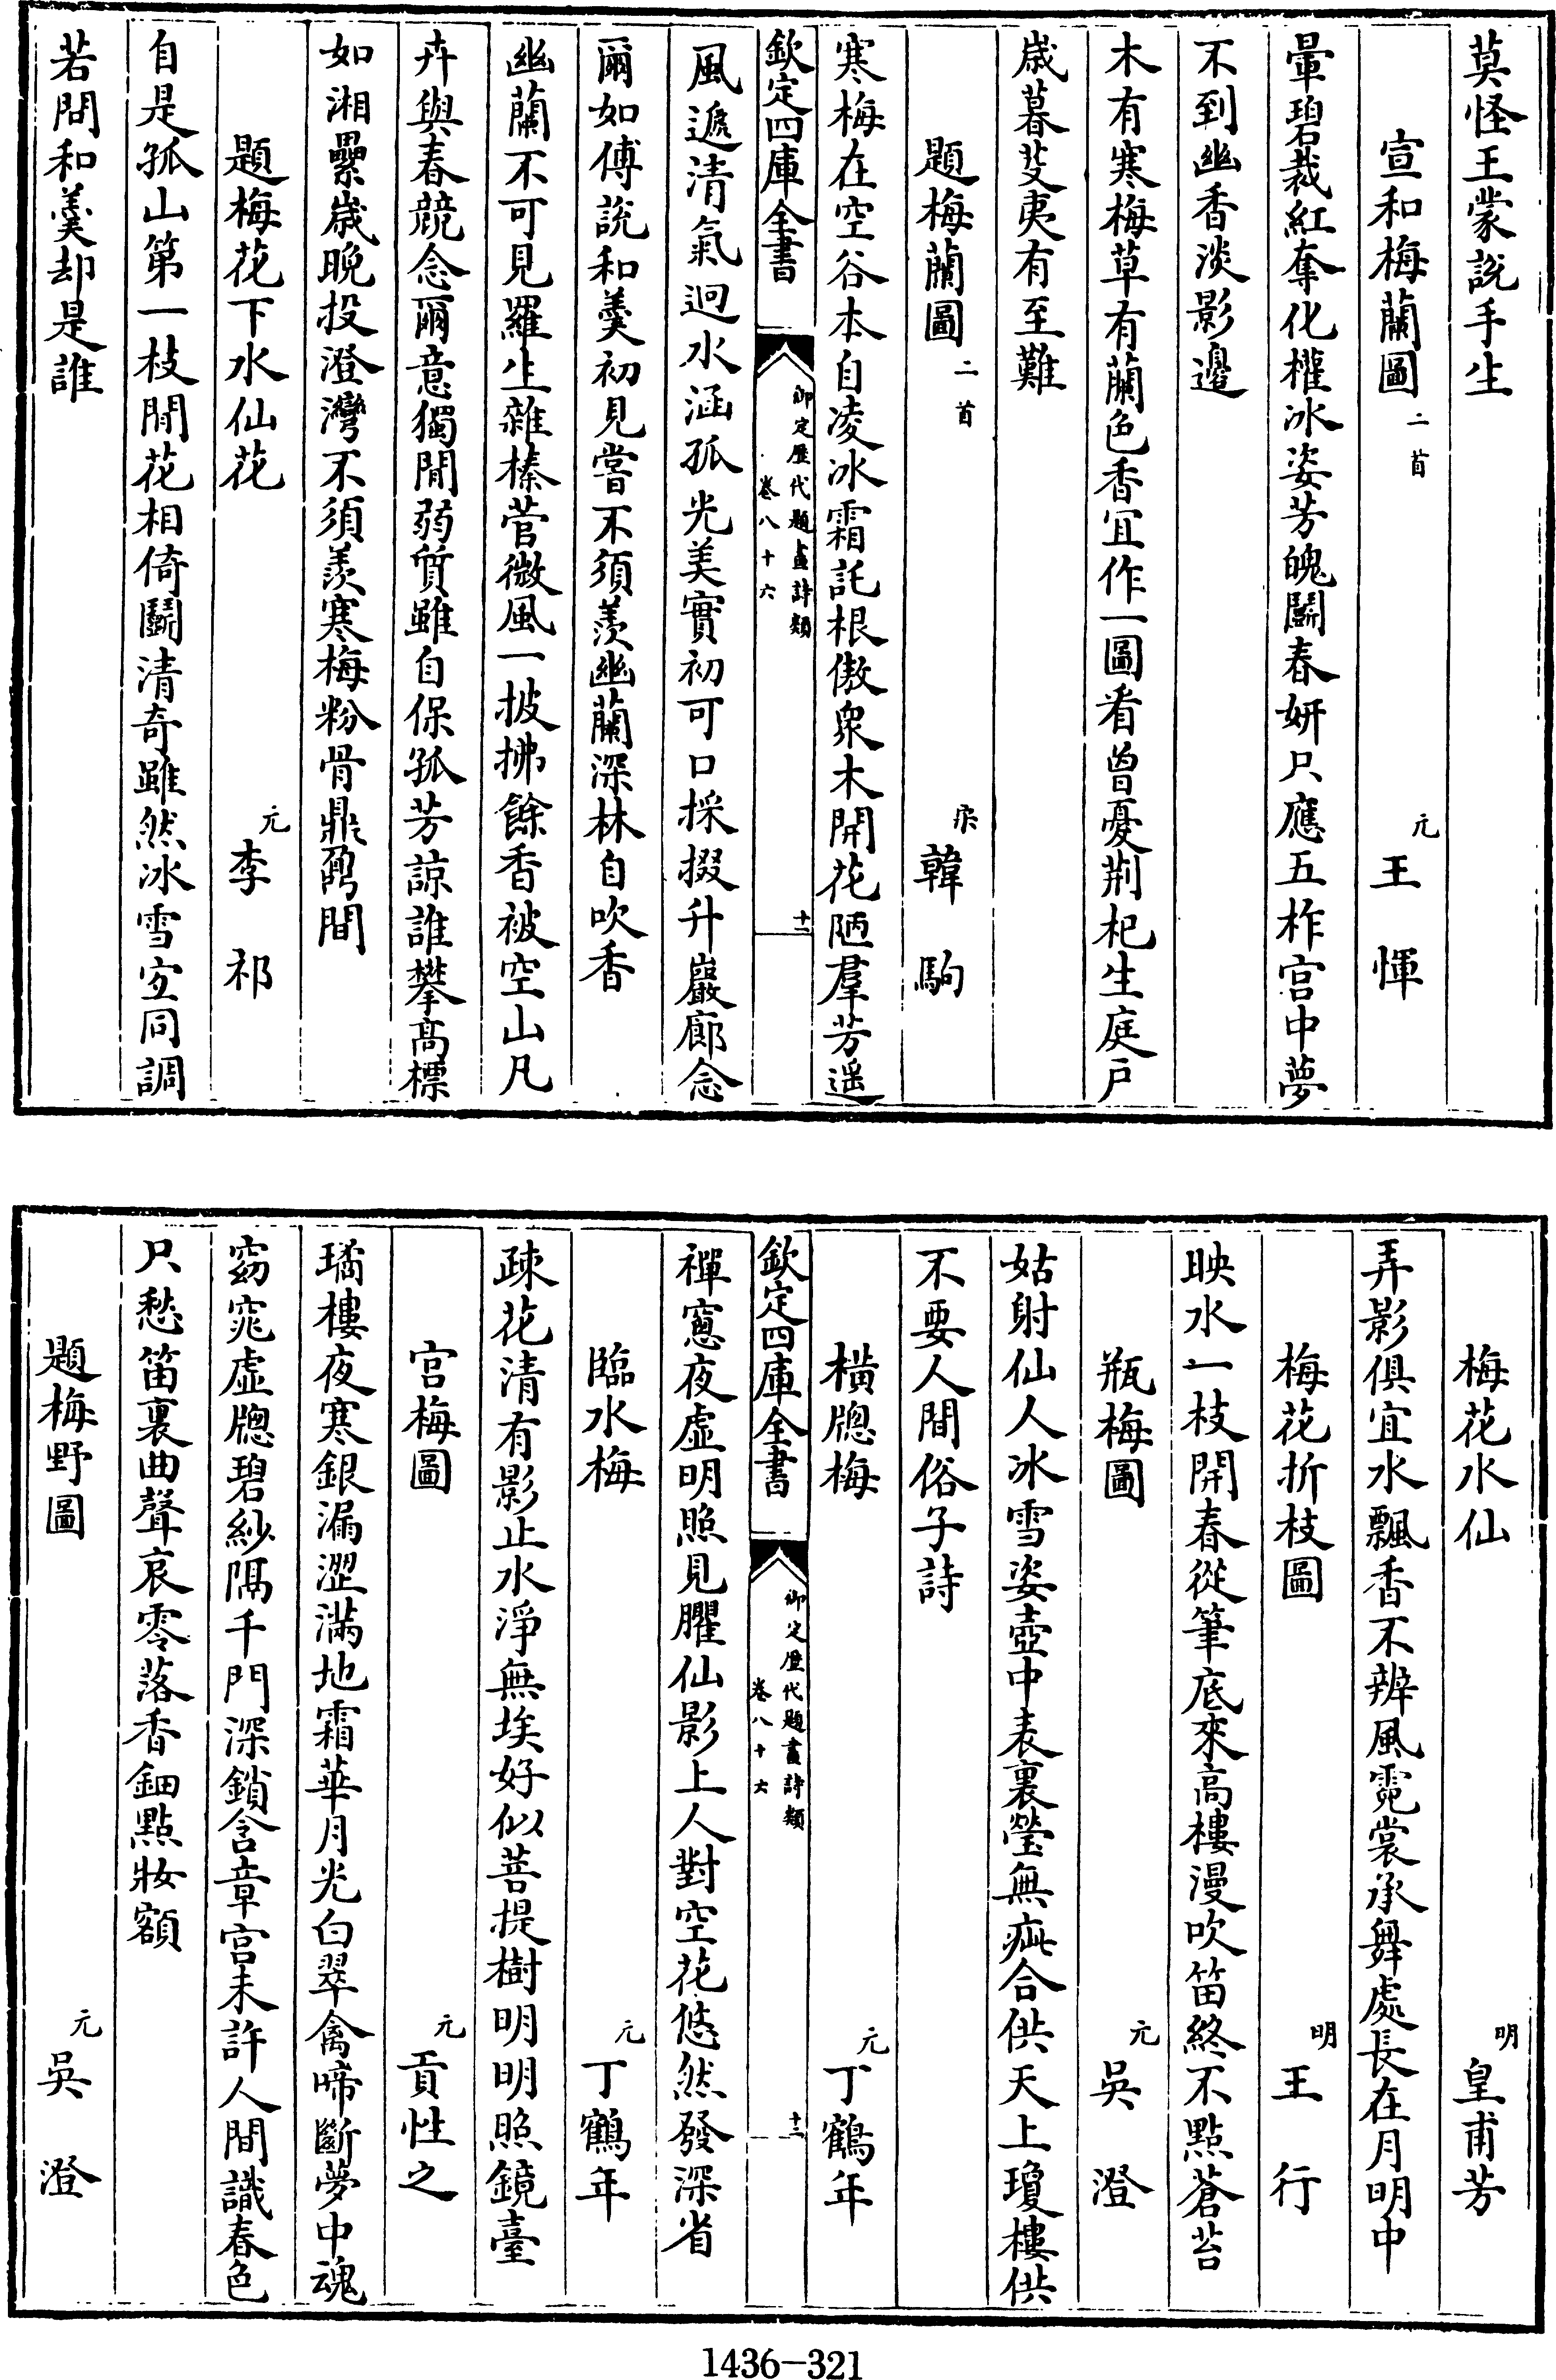 莫怪王蒙說手生
宣和梅蘭圖二首 元 王惲
暈碧裁紅奪化權冰姿芳魄鬬春妍只應五柞宫中夢
不到幽香淡影邊
木有寒梅草有蘭色香宜作一圖看曽憂荆杞生庭户
歲暮芟夷有至難
題梅蘭圖二首 宋 韓駒
寒梅在空谷本自凌冰霜託根傲衆木開花陋羣芳遥
欽定四庫全書 御定歴代題畫詩類 卷八十六 十一
風遞清氣迥水涵孤光美實初可口採掇升巖廊念
爾如傅說和羮初見嘗不須羨幽蘭深林自吹香
幽蘭不可見羅生雜榛菅微風一披拂餘香被空山凡
卉與春競念爾意獨閒弱質雖自保孤芳諒誰攀髙標
如湘纍歲晚投澄灣不須羨寒梅粉骨鼎鼐間
題梅花下水仙花 元 李祁
自是孤山第一枝閒花相倚鬬清奇雖然冰雪宜同調
若問和羮却是誰
梅花水仙 明 皇甫芳
弄影俱宜水飄香不辨風霓裳承舞處長在月明中
梅花折枝圖 明 王行
映水一枝開春從筆底來高樓漫吹笛終不點蒼苔
瓶梅圖 元 吳澄
姑射仙人冰雪姿壺中表裏瑩無疵合供天上瓊樓供
不要人間俗子詩
橫牕梅 元 丁鶴年
欽定四庫全書 御定歴代題畫詩類 卷八十六 十二
禪窻夜虛明照見臞仙影上人對空花悠然發深省
臨水梅 元 丁鶴年
疎花清有影止水淨無埃好似菩提樹明明照鏡臺
宫梅圖 元 貢性之
璚樓夜寒銀漏澀滿地霜華月光白翠禽啼斷夢中魂
窈窕虛牕碧紗隔千門深鎖含章宫未許人間識春色
只愁笛裏曲聲哀零落香鈿點妝額
題梅野圖 元 吳澄
1436-321